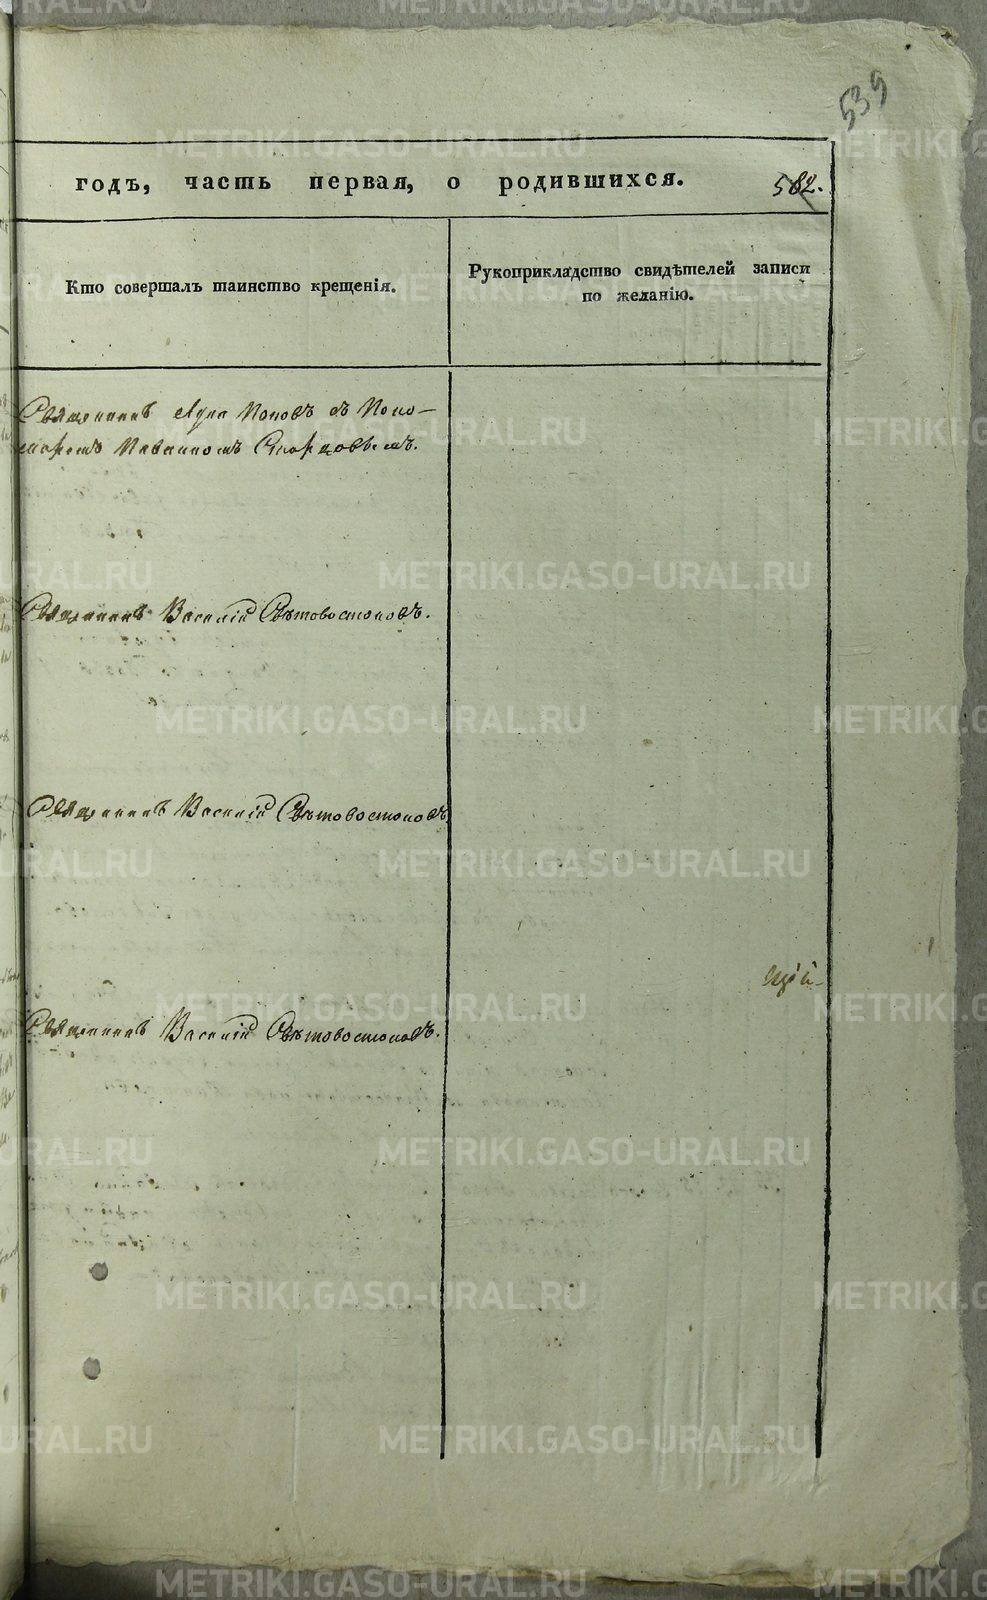 539
годъ, часть первая, о родившихся. 582.
Кто совершалъ таинство крещенія.
Рукоприкладство свидѣтелей записи
по желанію.
Священникъ Поповъ съ Поно-
маремъ
Священникъ Василій Свѣтовостоковъ.
Священникъ Василій Свѣтовостоковъ.
щій
Священникъ Василій Свѣтовостоковъ.
METRIKI.GASO-URAL.RU